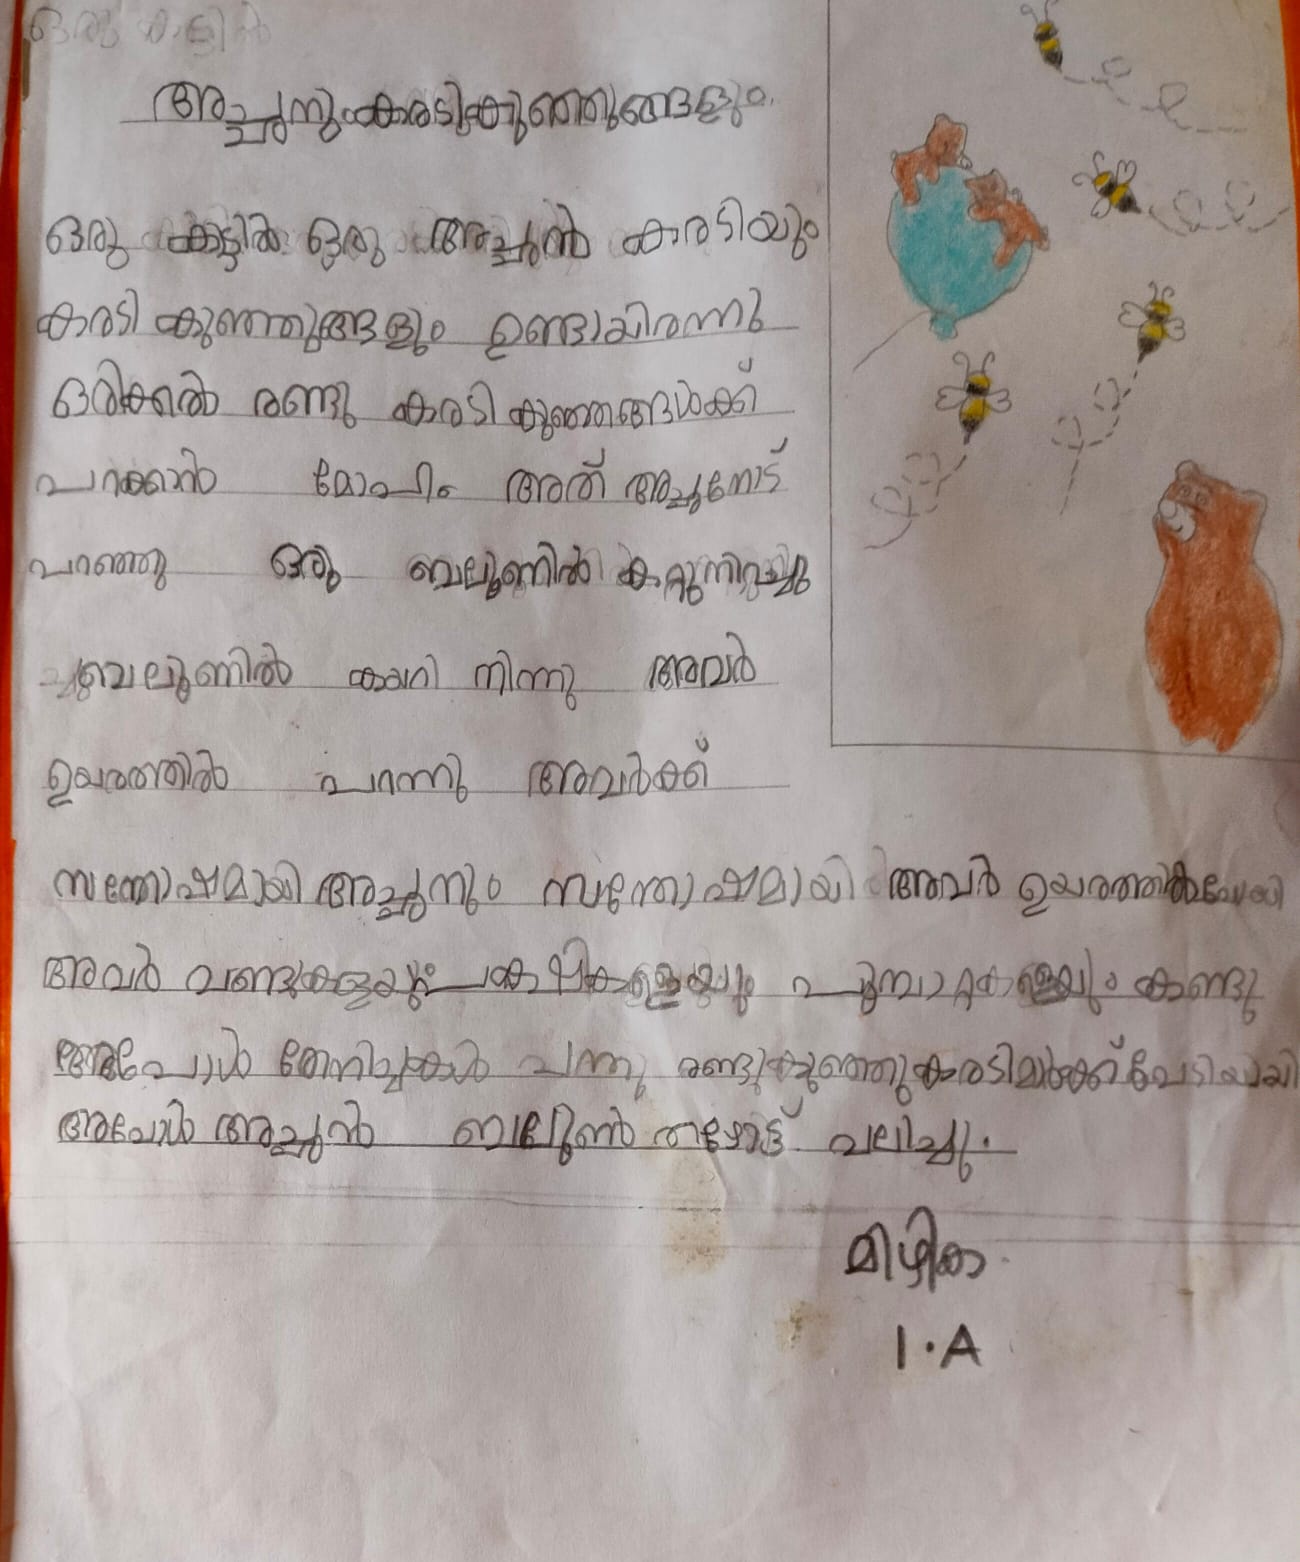 ഒരു
അച്ചനും കരടികുഞ്ഞുങ്ങളും.
ഒരു കാട്ടിൽ ഒരു അച്ചൻ കരടിയും
കരടി കുഞ്ഞുങ്ങളും ഉണ്ടായിരന്നു
ഒരിക്കൽ രണ്ടു കരടി കുഞ്ഞങ്ങൾക്ക്
പറക്കാൻ മോഹം അത് അച്ചനോട്
പറഞ്ഞു ഒരു ബലൂണിൽ കാറ്റുനിറച്ചു
ബലൂണിൽ കയറി നിന്നു അവർ
ഉയരത്തിൽ പറന്നു അവർക്ക്
സന്തോഷമായി അച്ചനും സന്തോഷമായി അവർ ഉയരത്തിൽപോയി
അവർ വണ്ടുകളെയും പക്ഷികളെയും പൂമ്പാറ്റകളെയും കണ്ടു
അപ്പോൾ തേനീച്ചകൾ വന്നു രണ്ടുകുഞ്ഞുകരടിമാർക്ക് പേടിയായി
അപ്പോൾ അച്ചൻ ബലൂൺ താഴോട്ട് വലിച്ചു.
മിഴിക
1.A